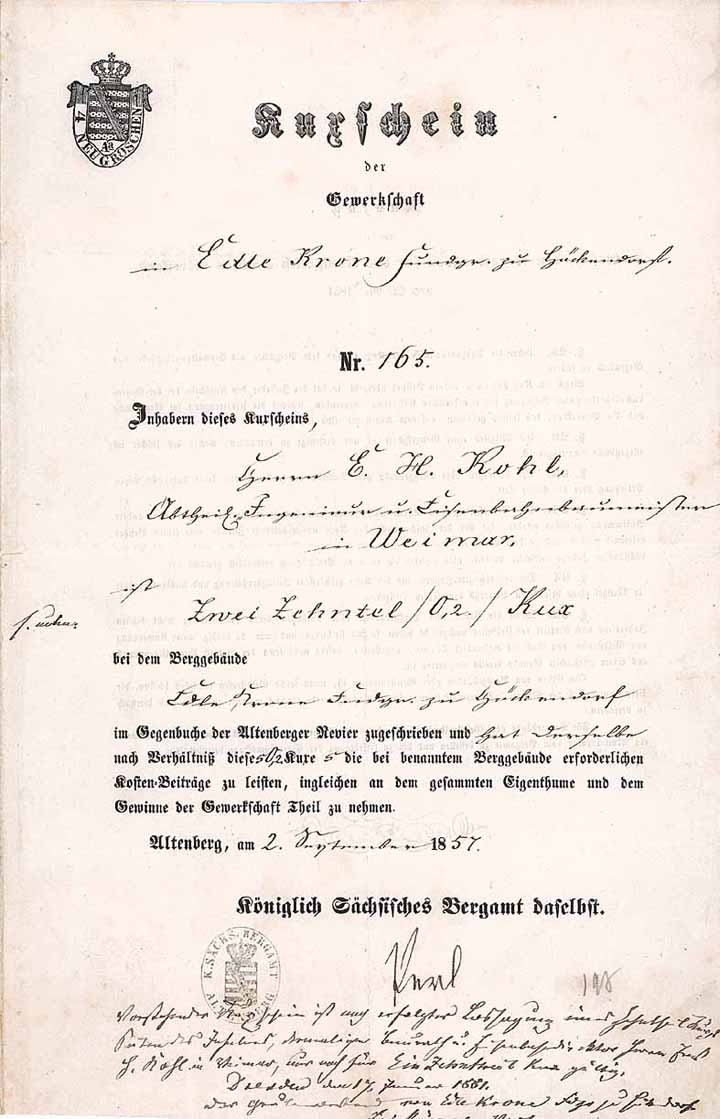 4
Aa
NEUGROSCHEN
Kuxschein
der
Gewerkschaft
in Edle Krone Fundgr. zu Höckendorf.
Nr. 165.
Inhabern dieses Kuxscheins,
Herrn E. H. Kohl,
Abtheil. Ingenieur u. Eisenbahnbaumeister
in Weimar,
ist
Zwei Zehntel /0,2./ Kux
bei dem Berggebäude
Edle Krone Fndgr. zu Höckendorf
im Gegenbuche der Altenberger Revier zugeschrieben und hat derselbe
nach Verhältniß dieses 0,2 Kuxes die bei benanntem Berggebäude erforderlichen
Kosten-Beiträge zu leisten, ingleichen an dem gesammten Eigenthume und dem
Gewinne der Gewerkschaft Theil zu nehmen.
Altenberg, am 2. September 1857.
Königlich Sächsisches Bergamt daselbst.
K. SÄCHS. BERGAMT
ALTENBERG
Perl
198
Vorstehender Kuxschein ist nach erfolgter Lossagung eines Zehntel Kuxes
Seiten des Inhabers, dermaligen Baurath u. Eisenbahndirektor Herrn Ernst
H. Kohl in Weimar, nur noch für Ein Zehntheil Kux gültig.
Dresden den 17. Januar 1861.
von Edle Krone Fdgr. zu Höckendorf